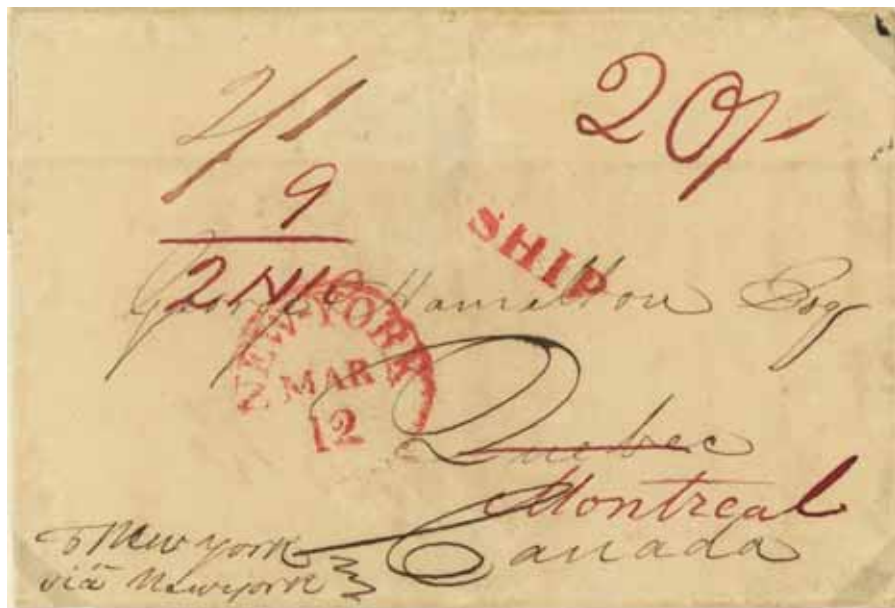 2/1
20/-
9
2/10
SHIP
George Hamelton Esq
NEW-YORK
MAR
12
Quebec
Montreal
Canada
New york
via Newyork